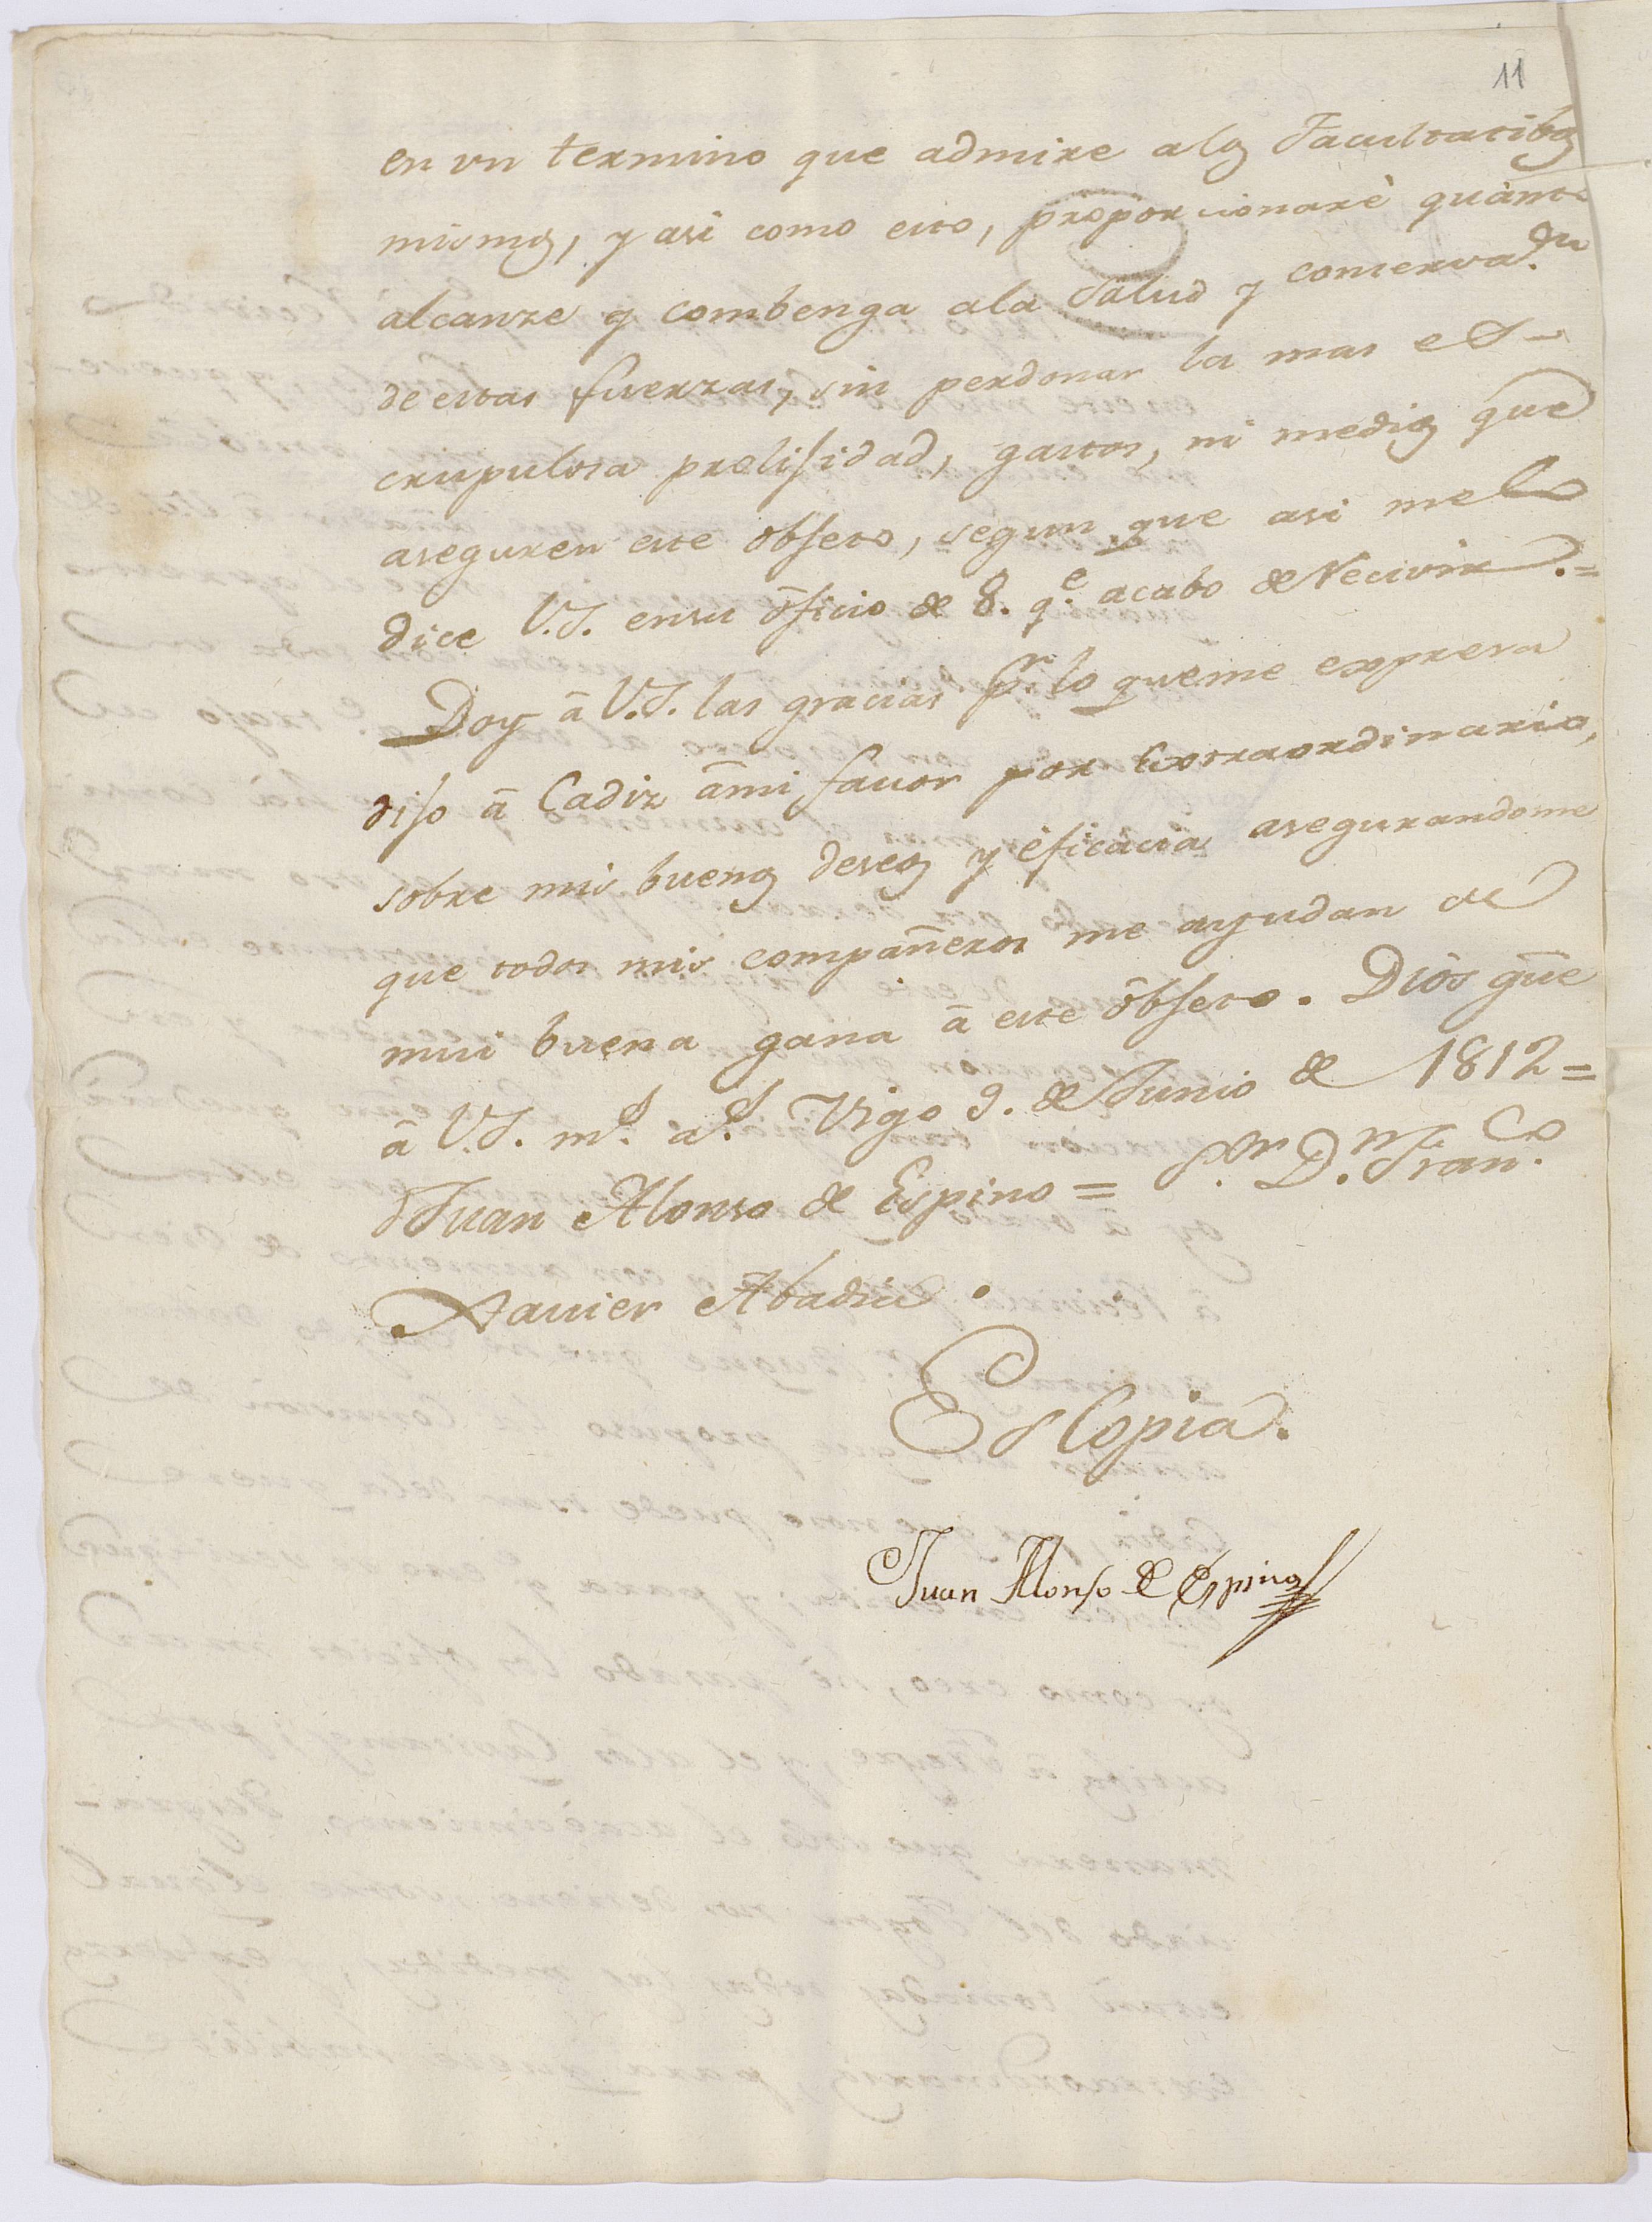 11
en vn termino que admire alos Facultatibos
mismos, y asi como esto, proporcionarè quànto
alcanze y combenga ala Salud y conserva.on
de estas fuerzas, sin perdonar la mas es-
crupulosa prolisidad, gastos, ni medios que
aseguren este obseto, segun que asi melo
dice V.S. ensu oficio de 8. q.e acabo de Recivir.=
Doy â V.S. las gracias p.r lo queme expresa
diso â Cadiz âmi favor por Extraordinario,
sobre mis buenos deseos y êficacia asegurandome
que todos mis compañeros me ayudan de
mui buena gana â este ôbseto. Diôs gûe
â V.S. m.s a.s Vigo 9. de Junio de 1812=
Juan Alonso de Espino= S.or D.n Fran.co
Xavier Abadia.
Es Copia.
Juan Alonso de Espino